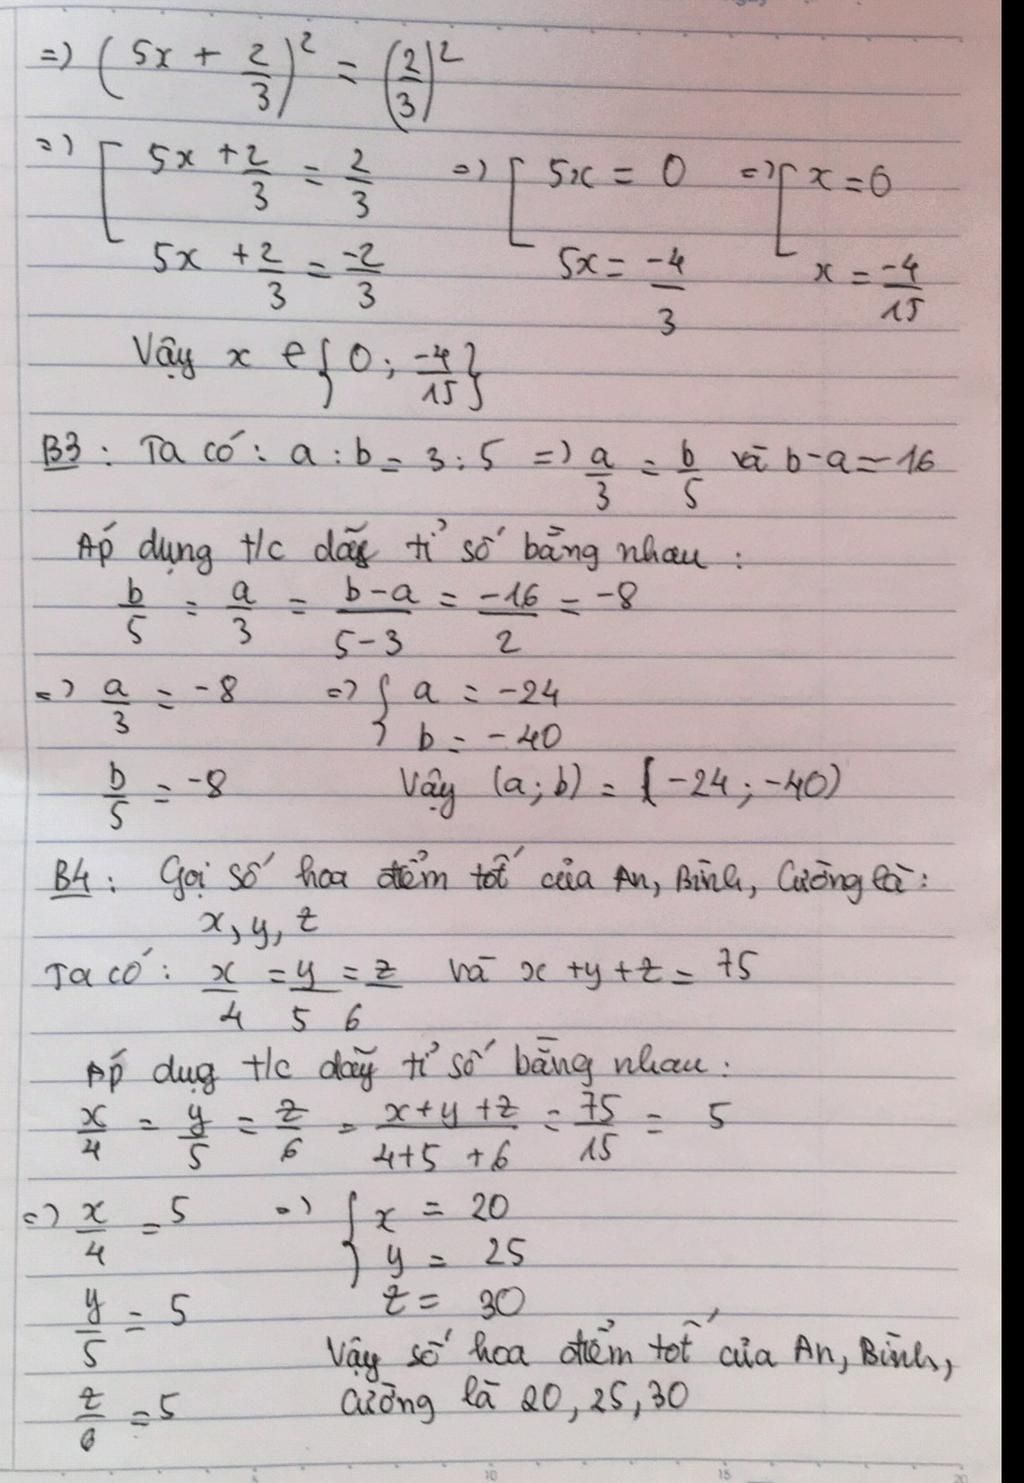 => (5x + 2/3)² = (2/3)²
=> [ 5x + 2/3 = 2/3 => [ 5x = 0 => [ x = 0
5x + 2/3 = -2/3 5x = -4/3 x = -4/15
Vậy x ∈ { 0 ; -4/15 }
B3 : Ta có : a : b = 3 : 5 => a/3 = b/5 và b - a = -16
Áp dụng t/c dãy tỉ số bằng nhau :
b/5 = a/3 = (b-a)/(5-3) = -16/2 = -8
=> a/3 = -8 => { a = -24
b = -40
b/5 = -8 Vậy (a ; b) = (-24 ; -40)
B4 : Gọi số hoa điểm tốt của An, Bình, Cường là :
x, y, z
Ta có : x/4 = y/5 = z/6 và x + y + z = 75
Áp dụg t/c dãy tỉ số bằng nhau :
x/4 = y/5 = z/6 = (x+y+z)/(4+5+6) = 75/15 = 5
=> x/4 = 5 => { x = 20
y = 25
y/5 = 5 z = 30
Vậy số hoa điểm tốt của An, Bình,
z/6 = 5 Cường là 20, 25, 30
10 15